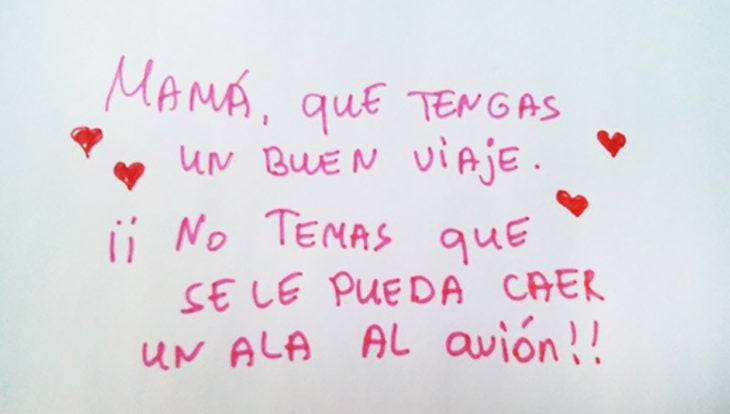 MAMÁ, QUE TENGAS
UN BUEN VIAJE.
¡¡ NO TEMAS QUE
SE LE PUEDA CAER
UN ALA AL avión!!